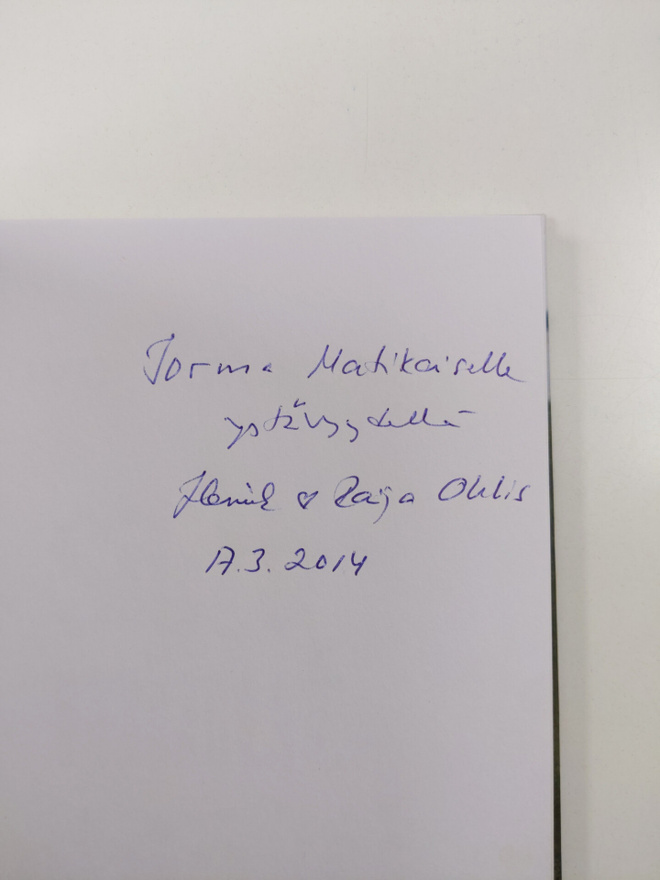 Jorma Matikaiselle
ystävyydellä
Henrik ♡ Raija Ohlis
17.3.2014